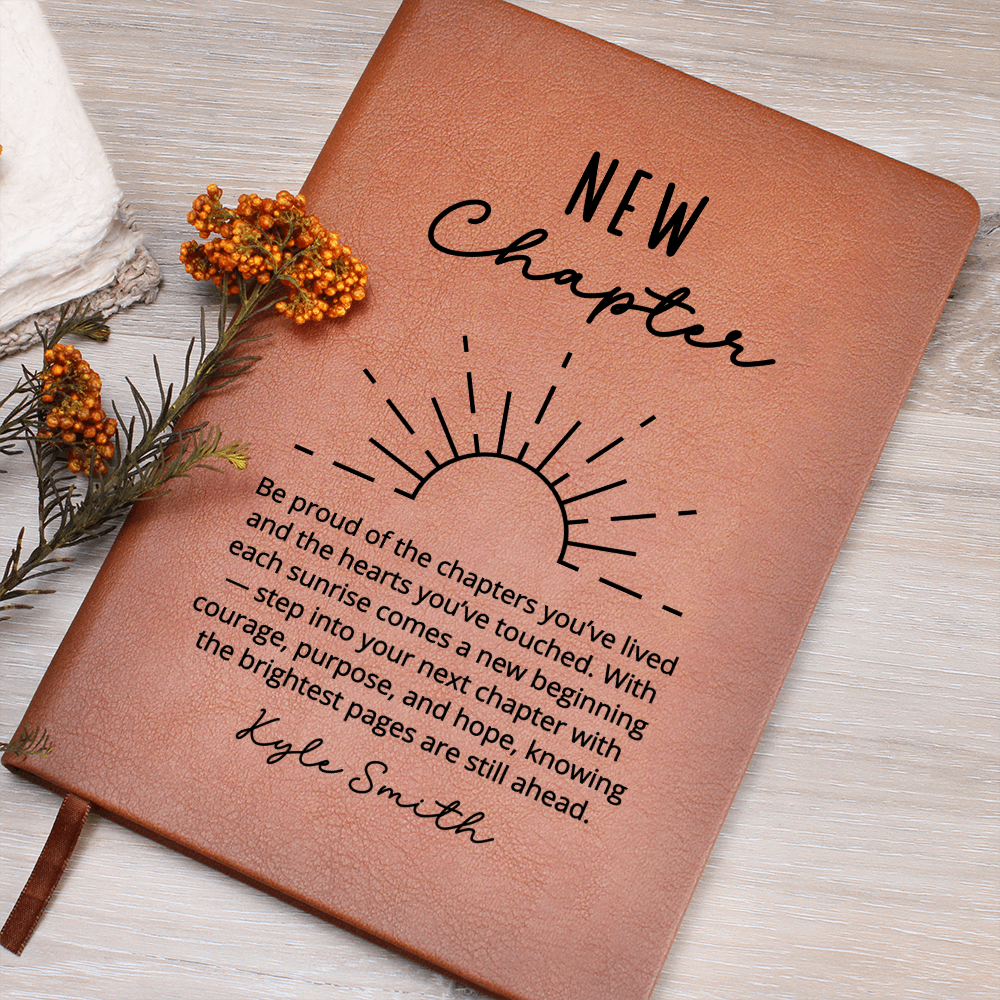 NEW
Chapter
Be proud of the chapters you've lived
and the hearts you've touched. With
each sunrise comes a new beginning
— step into your next chapter with
courage, purpose, and hope, knowing
the brightest pages are still ahead.
Kyle Smith